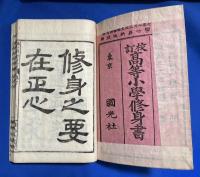 校訂
高等小學修身書
東京
國光社
修身之要
在正心